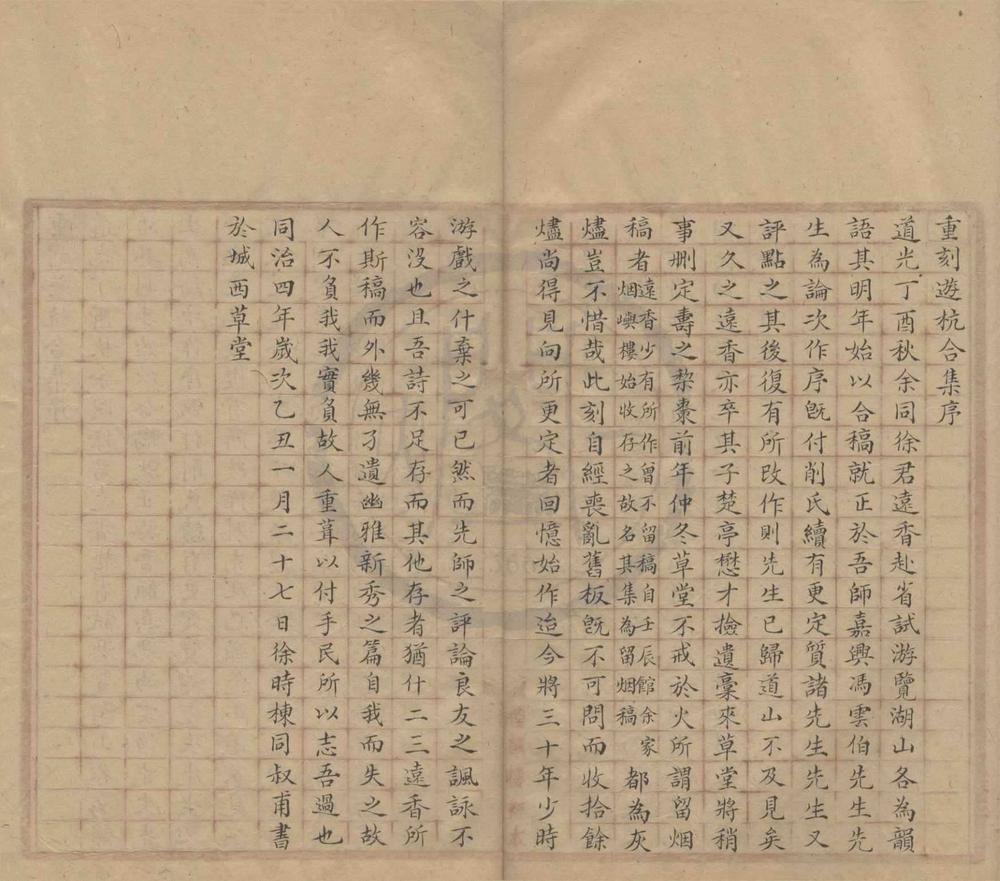 重刻遊杭合集序
道光丁酉秋余同徐君遠香赴省試游覽湖山各為韻
語其明年始以合稿就正於吾師嘉興馮雲伯先生先
生為論次作序既付削氏續有更定質諸先生先生又
評點之其後復有所改作則先生已歸道山不及見矣
又久之遠香亦卒其子楚亭懋才撿遺稾來草堂將稍
事刪定壽之梨棗前年仲冬草堂不戒於火所謂留烟
稿者遠香少有所作曾不留稿自壬辰館余家烟嶼樓始收存之故名其集為留烟稿都為灰
燼豈不惜哉此刻自經喪亂舊板既不可問而收拾餘
燼尚得見向所更定者回憶始作迨今將三十年少時
游戲之什棄之可已然而先師之評論良友之諷詠不
容沒也且吾詩不足存而其他存者猶什二三遠香所
作斯稿而外幾無孑遺幽雅新秀之篇自我而失之故
人不負我我實負故人重葺以付手民所以志吾過也
同治四年歲次乙丑一月二十七日徐時棟同叔甫書
於城西草堂